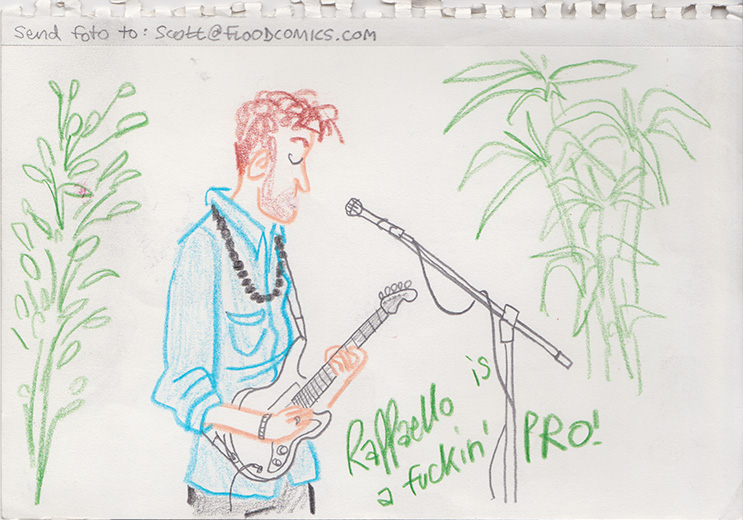 Send foto to: Scott@FLOODCOMICS.COM
Raffaello is
a fuckin' PRO!